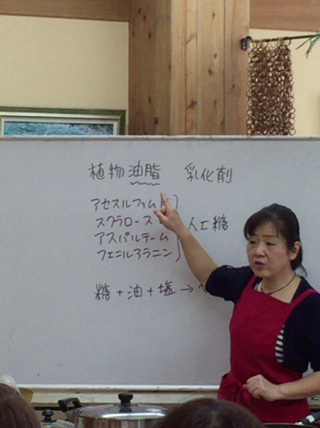 植物油脂 乳化剤
アセスルファム
スクラロース
アスパルテーム 人工糖
フェニルアラニン
糖+油+塩→